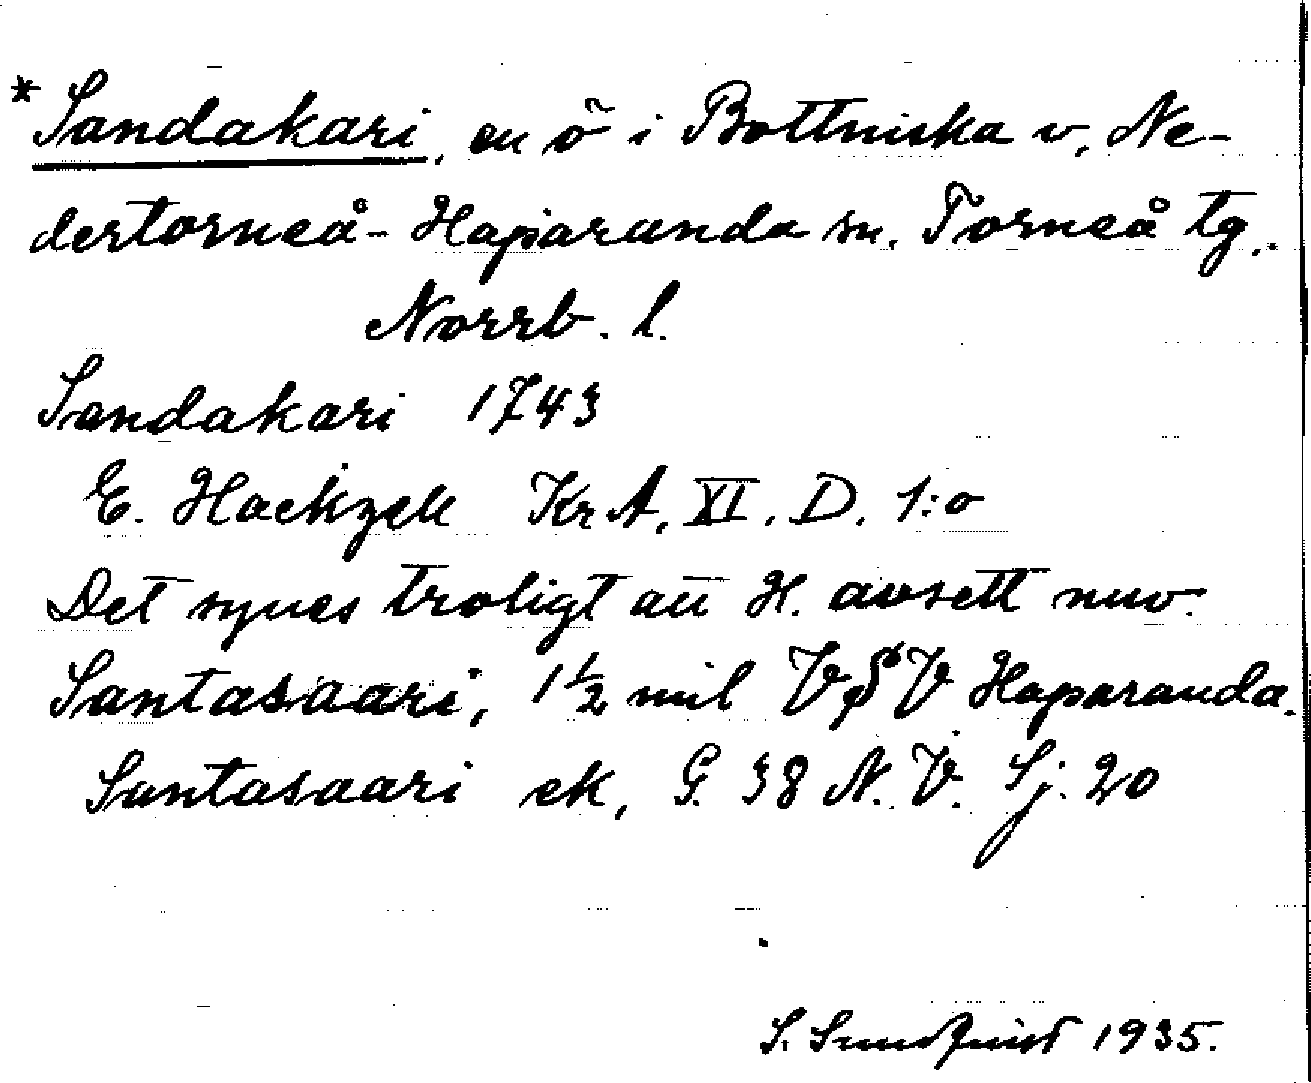 *Sandakari, en ö i Bottniska v, Ne-
dertorneå-Haparanda sn. Torneå tg.
Norrb. l.
Sandakari 1743
E. Hackzell KrA, XI. D. 1:o
Det synes troligt att H. avsett nuv.
Santasaari, 1½ mil VSV Haparanda.
Santasaari ek, G. 38 N.V. Sj. 20
S. Sundquist 1935.